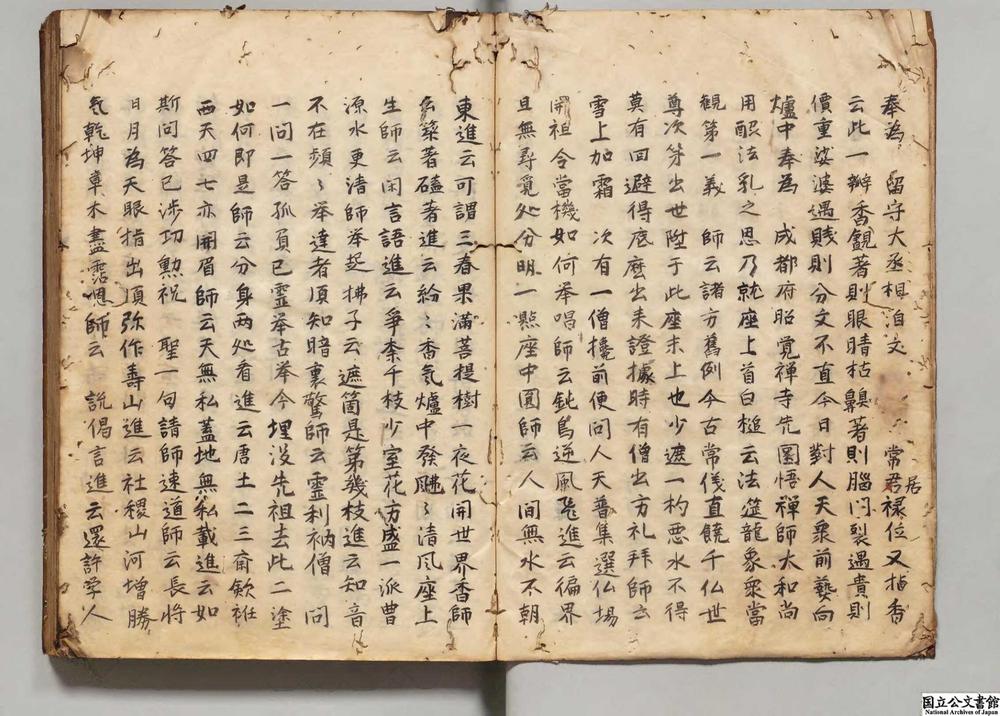 奉為 留守大丞相洎文 常居禄位又拈香
云此一瓣香覷著則眼睛枯齅著則腦门裂遇貴則
價重娑婆遇賎則分文不直今日對人天衆前爇向
爐中奉為 成都府昭覚禅寺先圜悟禅師大和尚
用酬法乳之恩乃就座上首白槌云法筵龍象衆當
観第一義 師云諸方舊例今古常儀直饒千仏世
尊次苐出世陞于此座未上也少遮一杓悪水不得
莫有回避得底麽出来證據時有僧出方礼拜師云
雪上加霜 次有一僧攙前便问人天普集選仏場
開祖令當機如何举唱師云鈍鳥逆風飛進云徧界
且無尋覓処分明一㸃座中圓師云人间無水不朝
東進云可謂三春果滿菩提樹一夜花開世界香師
云築著磕著進云紛〻香氛爐中發颾〻清风座上
生師云闲言語進云争柰千枝少室花方盛一派曹
源水更清師举起拂子云遮箇是第幾枝進云知音
不在頻〻举達者須知暗裏驚師云霊利衲僧 问
一问一答孤負已霊举古举今埋没先祖去此二塗
如何即是師云分身两処看進云唐土二三斎歛衽
西天四七亦開眉師云天無私蓋地無私載進云如
斯问答已涉功勲祝 聖一句請師速道師云長将
日月為天眼指出須弥作寿山進云社稷山河增勝
气乾坤草木盡霑恩師云 説偈言進云還許学人
国立公文書館
National Archives of Japan